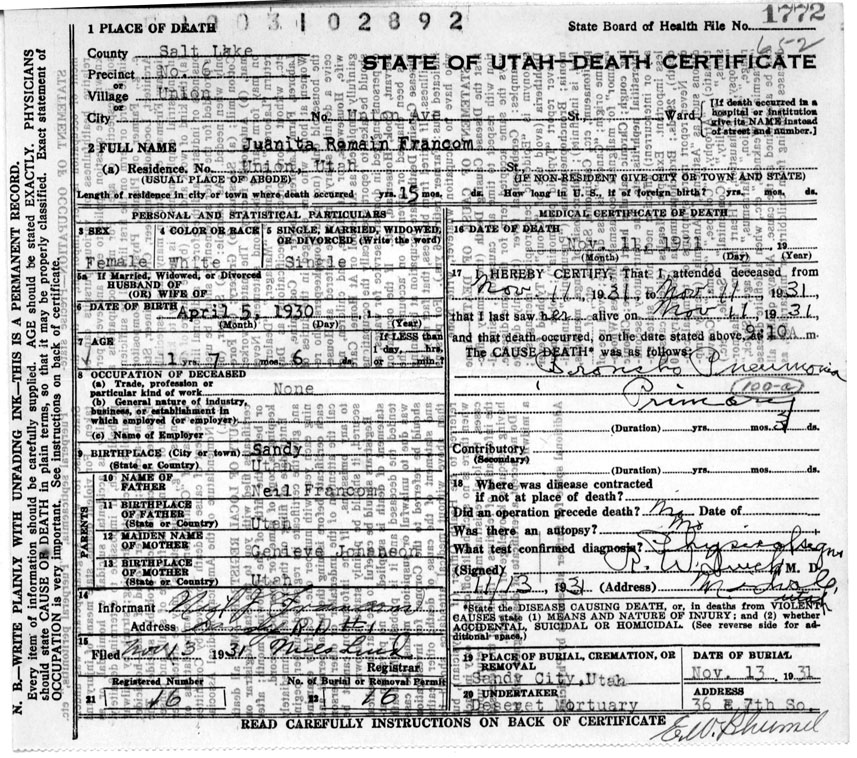 1003102892
1772
652
1 PLACE OF DEATH
State Board of Health File No.
County Salt Lake
STATE OF UTAH—DEATH CERTIFICATE
Precinct No. 6
or
Village Union
or
City No. Union Ave. St. Ward
[If death occurred in a hospital or institution give its NAME instead of street and number.]
2 FULL NAME Juanita Romain Francom
(a) Residence. No. Union, Utah St.
(USUAL PLACE OF ABODE) (IF NON-RESIDENT GIVE CITY OR TOWN AND STATE)
Length of residence in city or town where death occurred yrs. 15 mos. ds. How long in U. S., if of foreign birth? yrs. mos. ds.
PERSONAL AND STATISTICAL PARTICULARS
3 SEX 4 COLOR OR RACE 5 SINGLE, MARRIED, WIDOWED, OR DIVORCED (Write the word)
Female White Single
5a If Married, Widowed, or Divorced
HUSBAND OF
(OR) WIFE OF
6 DATE OF BIRTH April 5, 1930
(Month) (Day) (Year)
7 AGE 1 yrs. 7 mos. 6 ds.
If LESS than
1 day, hrs.
or min.?
8 OCCUPATION OF DECEASED
(a) Trade, profession or
particular kind of work None
(b) General nature of industry,
business, or establishment in
which employed (or employer)
(c) Name of Employer
9 BIRTHPLACE (City or town) Sandy
(State or Country) Utah
PARENTS
10 NAME OF
FATHER Neil Francom
11 BIRTHPLACE
OF FATHER
(State or Country) Utah
12 MAIDEN NAME
OF MOTHER Geneieva Johanson
13 BIRTHPLACE
OF MOTHER
(State or Country) Utah
14
Informant Neil J. Francom
Address Sandy R D # 1
15
Filed Nov 13 1931 Niels Lind
Registrar
Registered Number No. of Burial or Removal Permit
21 16 22 16
MEDICAL CERTIFICATE OF DEATH
16 DATE OF DEATH
Nov. 11, 1931 19
(Month) (Day) (Year)
17 I HEREBY CERTIFY, That I attended deceased from
Nov 11, 1931, to Nov 11, 1931,
that I last saw her alive on Nov 11 1931,
and that death occurred, on the date stated above, at 9:10 A. m
The CAUSE DEATH* was as follows:
Broncho Pneumonia
(100-a)
Primary
(Duration) yrs. mos. 3 ds.
Contributory
(Secondary)
(Duration) yrs. mos. ds.
18 Where was disease contracted
if not at place of death?
Did an operation precede death? No Date of
Was there an autopsy? No
What test confirmed diagnosis? Physing signs
(Signed) M. D.
11/13 1931 (Address) Midvale, Utah
*State the DISEASE CAUSING DEATH, or, in deaths from VIOLENT CAUSES state (1) MEANS AND NATURE OF INJURY; and (2) whether ACCIDENTAL, SUICIDAL OR HOMICIDAL. (See reverse side for additional space.)
19 PLACE OF BURIAL, CREMATION, OR REMOVAL DATE OF BURIAL
Sandy City, Utah Nov. 13 1931
20 UNDERTAKER ADDRESS
Deseret Mortuary 36 E. 7th So.
READ CAREFULLY INSTRUCTIONS ON BACK OF CERTIFICATE
N. B.—WRITE PLAINLY WITH UNFADING INK—THIS IS A PERMANENT RECORD.
Every item of information should be carefully supplied. AGE should be stated EXACTLY. PHYSICIANS
should state CAUSE OF DEATH in plain terms, so that it may be properly classified. Exact statement of
OCCUPATION is very important. See instructions on back of certificate.